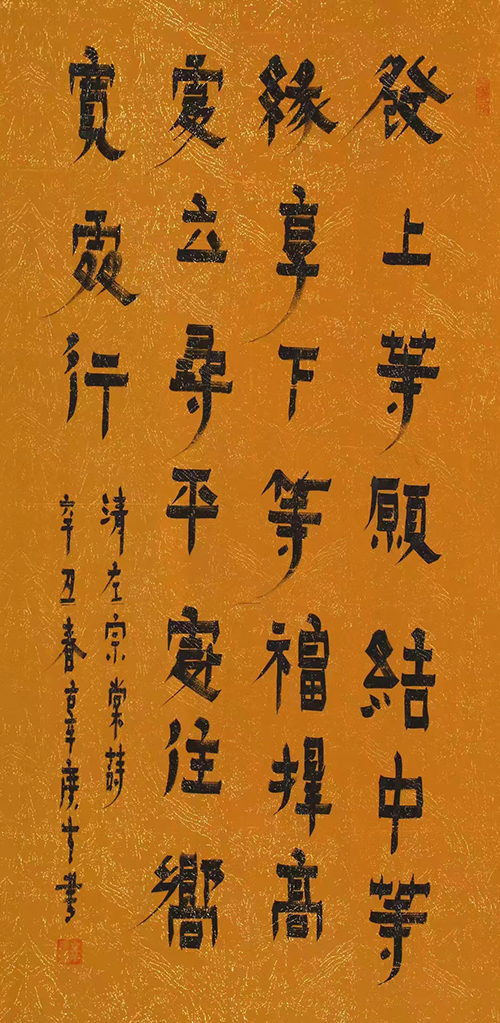 發上等願結中等
緣享下等福擇高
處立尋平處住嚮
寬處行
清左宗棠詩
辛丑春書